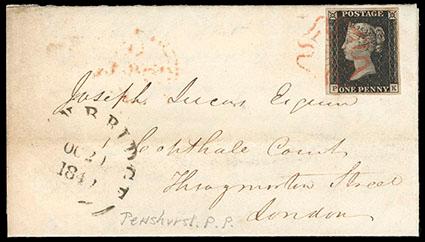 POSTAGE
ONE PENNY
F K
Joseph Lucas Esquire
1
Copthale Court
Throgmorton Street
London
BRIDGE
OC 2
184
Penshurst. P.P.